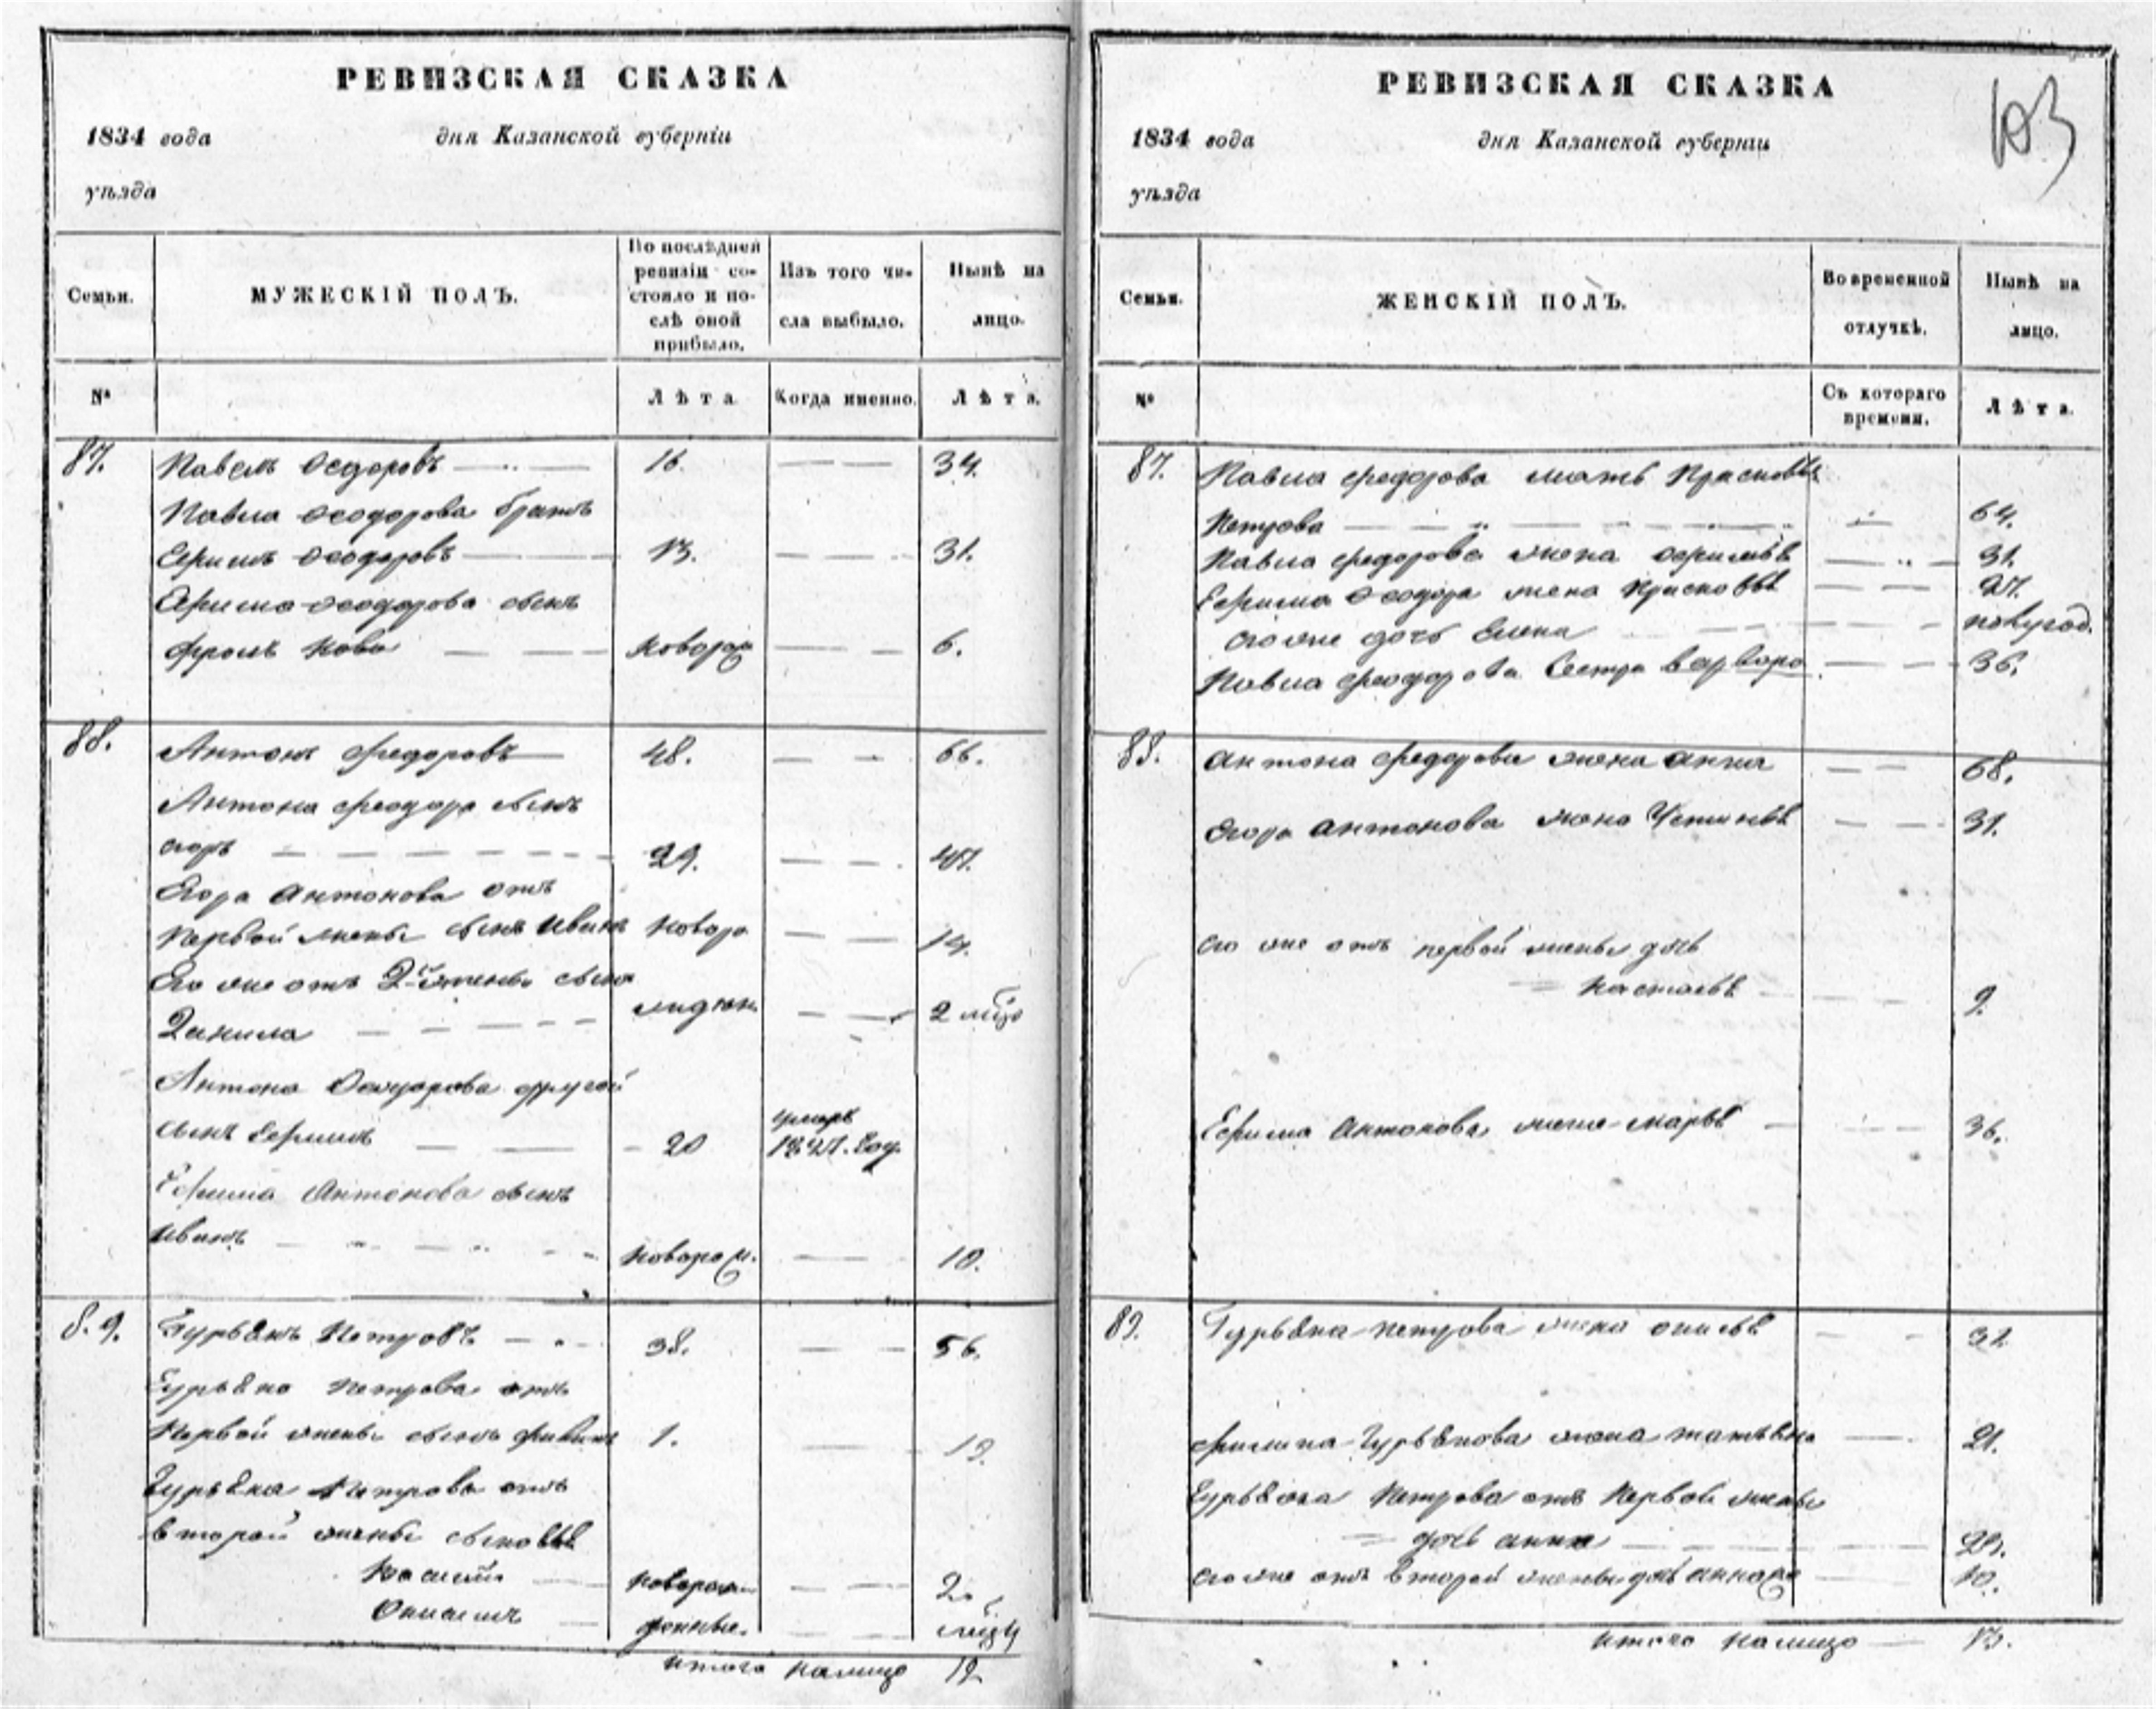 РЕВИЗСКАЯ СКАЗКА
1834 года дня Казанской губерніи
уѣзда
Семьи.
МУЖЕСКІЙ ПОЛЪ.
По послѣдней
ревизіи со-
стояло и по-
слѣ оной
прибыло.
Изъ того чи-
сла выбыло.
Нынѣ на
лицо.
№
Лѣта
Когда именно.
Лѣта.
87. Павелъ Феодоровъ 16 34.
Павла Феодорова братъ
Ефимъ Феодоровъ 13. 31.
Ефима Феодорова сынъ
6.
88. Антонъ Федоровъ 48. 66.
Антона Феодора сынъ
Егоръ 29. 47.
Егора Антонова отъ
первой жены сынъ Иванъ новоро 14.
Его же отъ 2й жены сынъ
Данила 2
Антона Феодорова другой
сынъ Ефимъ 20 умеръ
1827. год.
Ефима Антонова сынъ
Иванъ новорож. 10.
89. Гурьянъ Петровъ 38. 56.
Гурьяна Петрова отъ
первой жены сынъ 1. 19.
Гурьяна Петрова отъ
второй жены сыновья
новорож
денные.
итого налицо 12
РЕВИЗСКАЯ СКАЗКА
103
1834 года дня Казанской губерніи
уѣзда
Семьи.
ЖЕНСКІЙ ПОЛЪ.
Во временной
отлучкѣ.
Нынѣ на
лицо.
№
Съ котораго
времени.
Лѣта.
87. Павла Федорова мать Прасковья
Петрова 64.
Павла Федорова жена 31.
Ефима Феодора жена Прасковья 27.
его же дочь Елена полугод.
Павла Феодорова сестра Варвара 36.
88. Антона Федорова жена Анна 68.
Егора Антонова жена Устинья 31.
его же отъ первой жены дочь
Настасья 9.
Ефима Антонова жена Марья 36.
89. Гурьяна Петрова жена 32
Филипа Гурьянова жена Татьяна 21.
Гурьяна Петрова отъ первой жены
дочь Анна
его же отъ второй жены дочь 10.
итого налицо 13.